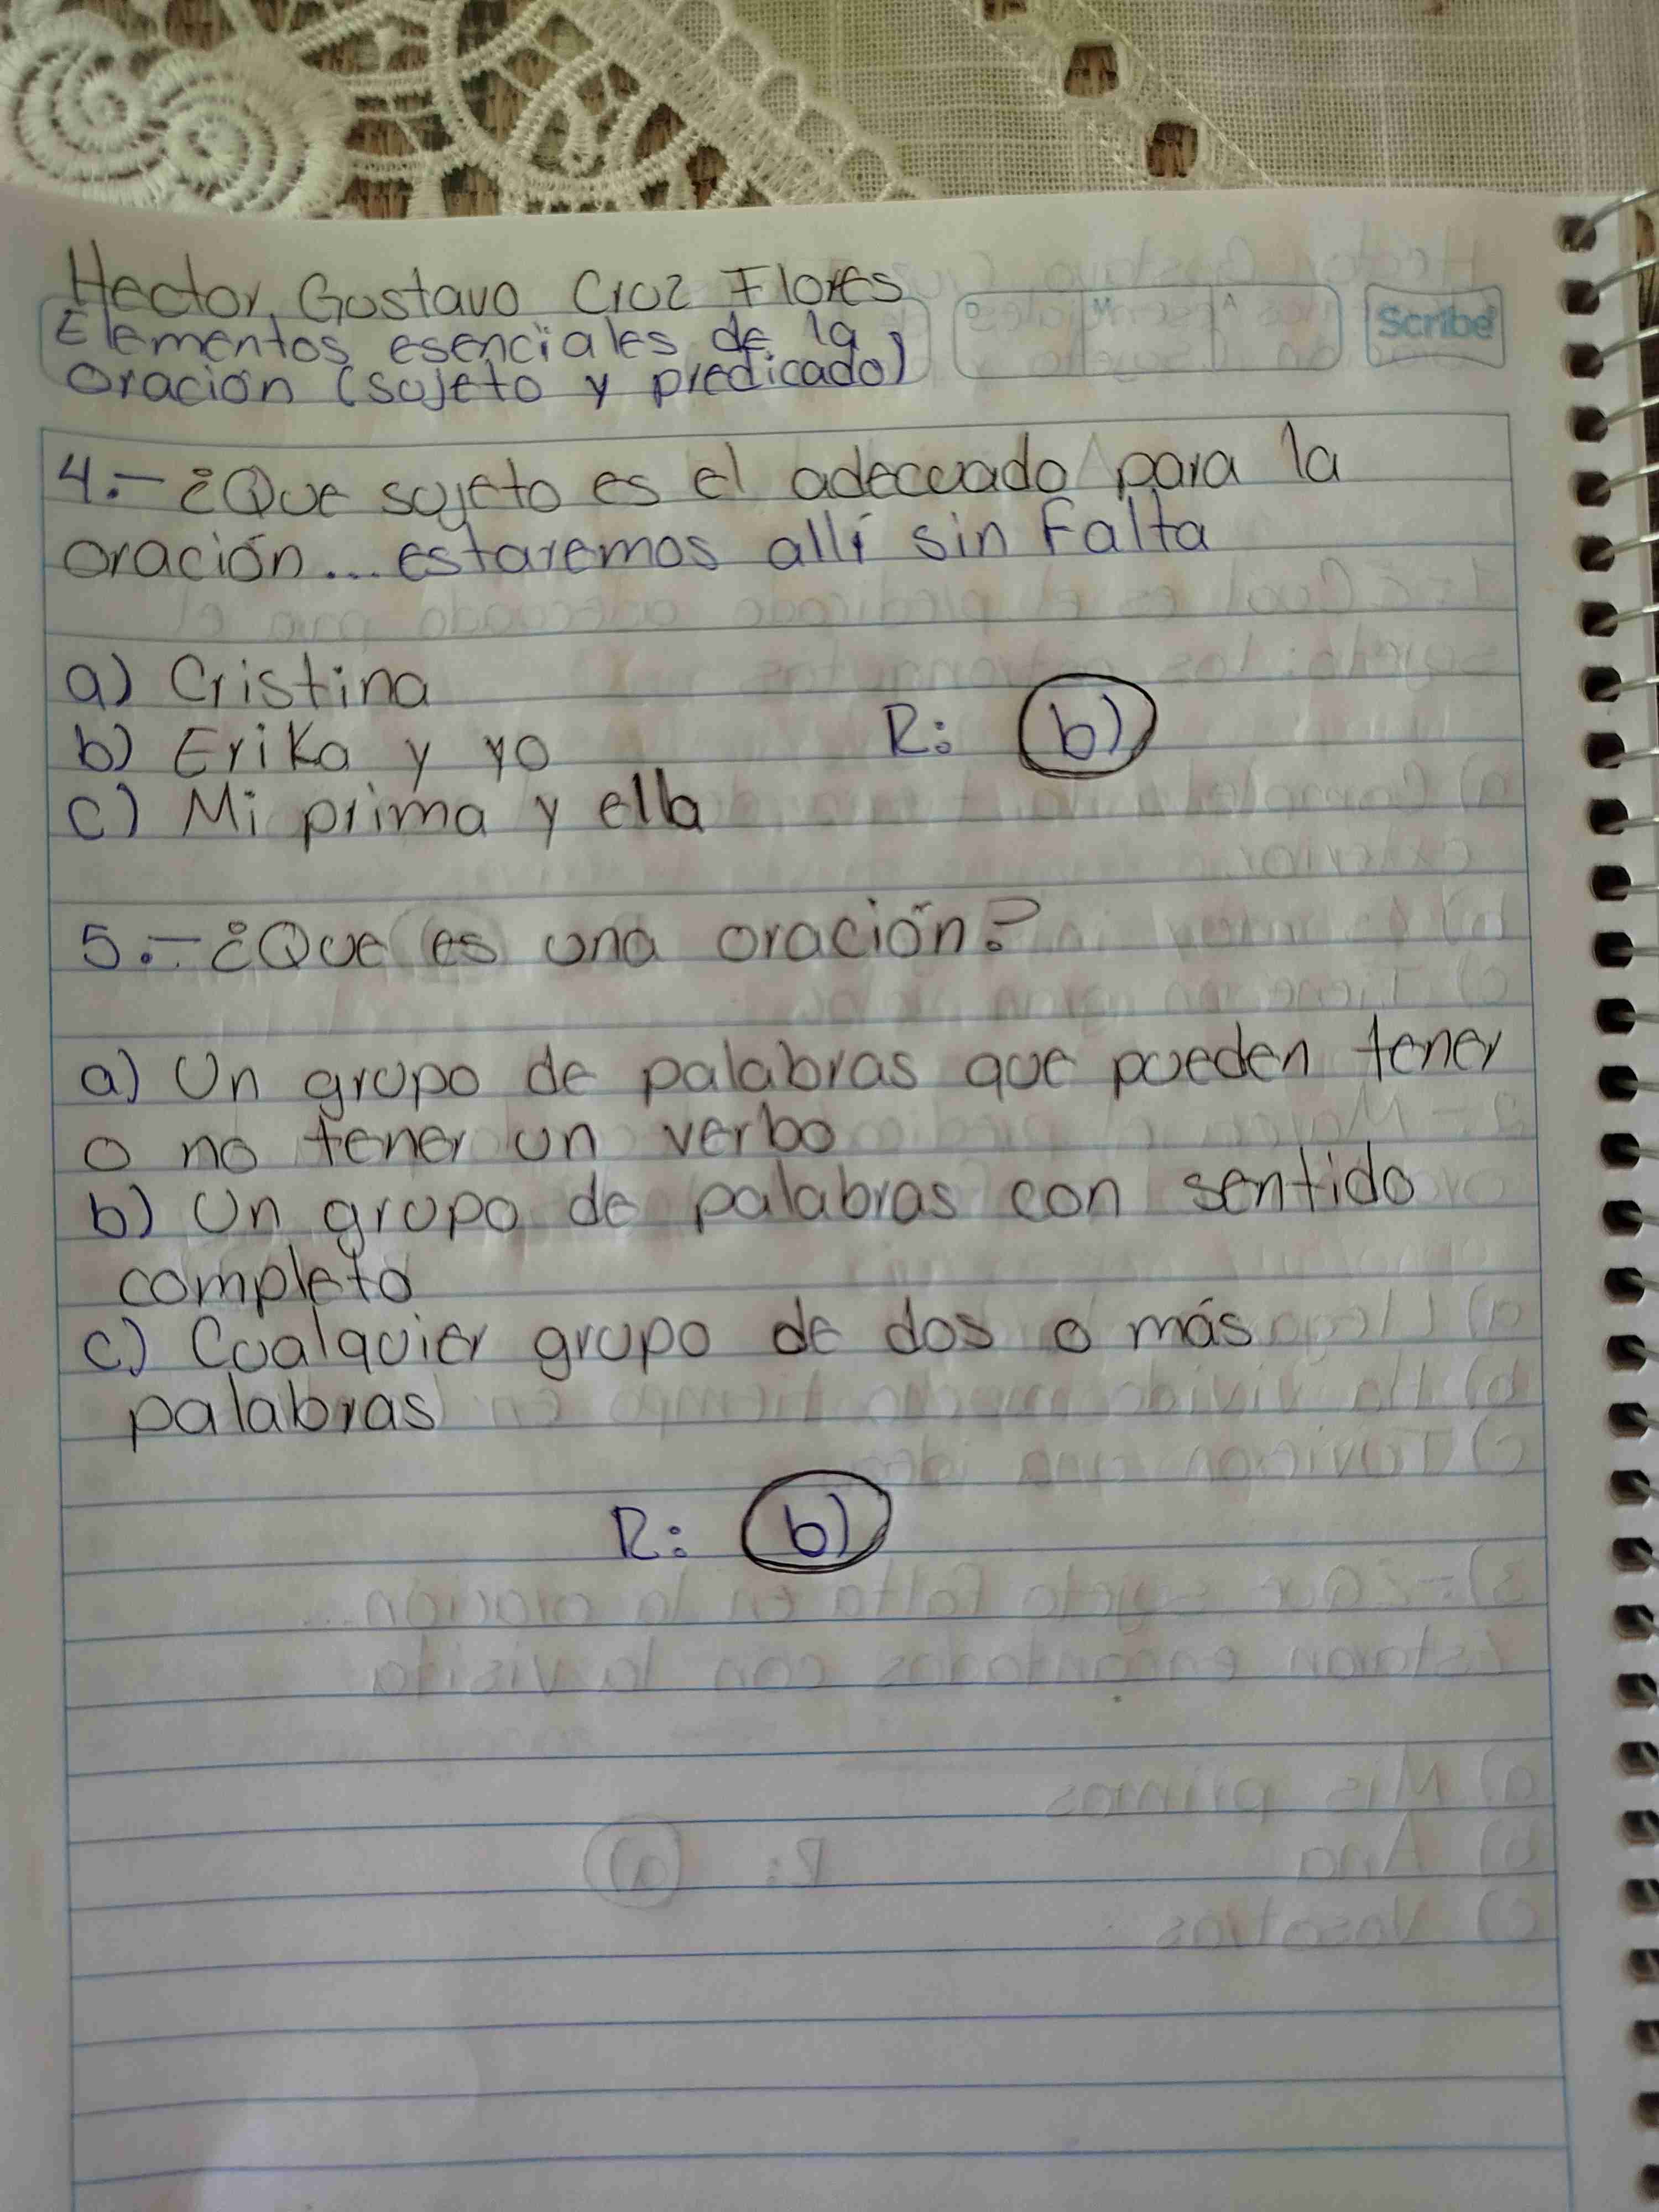 Hector Gustavo Cruz Flores
Elementos esenciales de la
oración (sujeto y predicado)
D M A
Scribe
4.- ¿Que sujeto es el adecuado para la
oración... estaremos allí sin Falta
a) Cristina
b) Erika y yo
R: b)
c) Mi prima y ella
5.- ¿Que es una oración?
a) Un grupo de palabras que pueden tener
o no tener un verbo
b) Un grupo de palabras con sentido
completo
c) Cualquier grupo de dos o más
palabras
R: b)